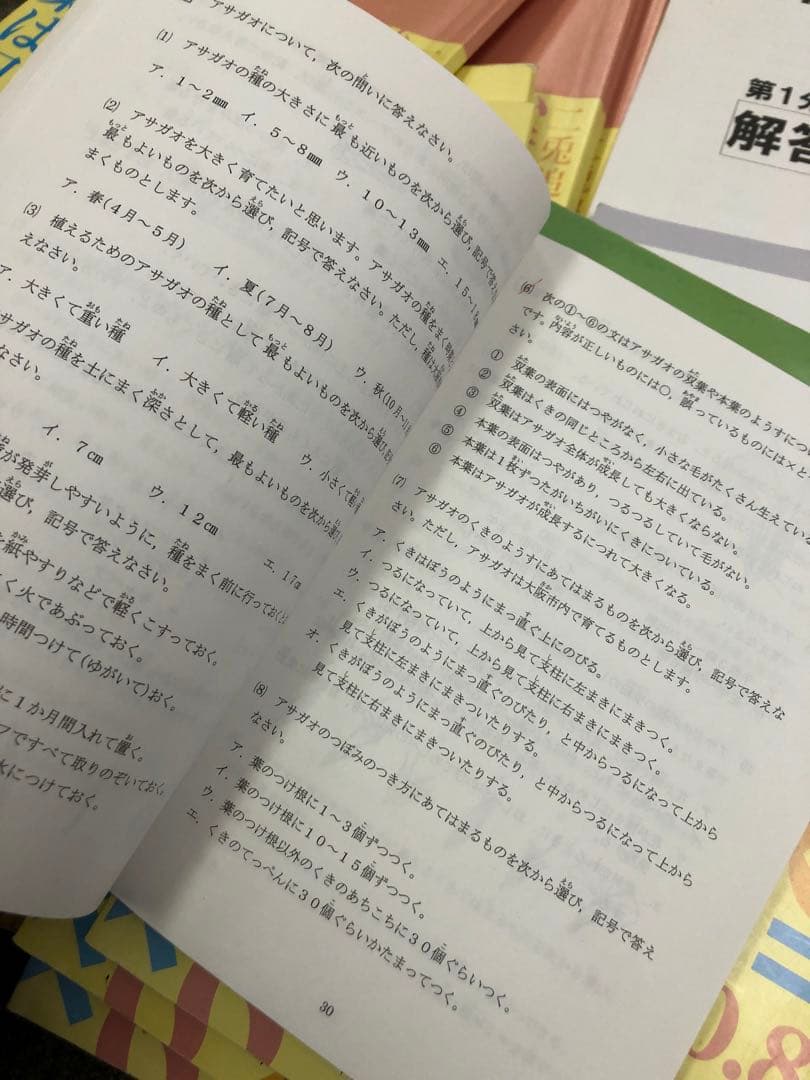 アサガオについて，次の問いに答えなさい。
(1) アサガオの種の大きさに最も近いものを次から選び，記号で答えなさい。
ア．1～2mm イ．5～8mm ウ．10～13mm エ．15～
(2) アサガオを大きく育てたいと思います。アサガオの種をまく
最もよいものを次から選び，記号で答えなさい。ただし，種は
まくものとします。
ア．春(4月～5月) イ．夏(7月～8月) ウ．秋(10月～
(3) 植えるためのアサガオの種として最もよいものを次から選び，
えなさい。
ア．大きくて重い種 イ．大きくて軽い種 ウ．小さくて
サガオの種を土にまく深さとして，最もよいものを次から選び
なさい。
イ．7cm ウ．12cm エ．17
が発芽しやすいように，種をまく前に行っておく
選び，記号で答えなさい。
紙やすりなどで軽くこすっておく。
く火であぶっておく。
時間つけて(ゆがいて)おく。
に1か月間入れて置く。
フですべて取りのぞいておく。
水につけておく。
(6) 次の①～⑥の文はアサガオの双葉や本葉のようすについ
です。内容が正しいものには○，誤っているものには×と
さい。
① 双葉の表面にはつやがなく，小さな毛がたくさん生えている
② 双葉はくきの同じところから左右に出ている。
③ 双葉はアサガオ全体が成長しても大きくならない。
④ 本葉の表面はつやがあり，つるつるしていて毛がない。
⑤ 本葉は1枚ずつたがいちがいにくきについている。
⑥ 本葉はアサガオが成長するにつれて大きくなる。
(7) アサガオのくきのようすにあてはまるものを次から選び，記号で答えな
さい。ただし，アサガオは大阪市内で育てるものとします。
ア．くきはぼうのようにまっ直ぐ上にのびる。
イ．つるになっていて，上から見て支柱に左まきにまきつく。
ウ．つるになっていて，上から見て支柱に右まきにまきつく。
エ．くきがぼうのようにまっ直ぐのびたり，と中からつるになって上から
見て支柱に左まきにまきついたりする。
オ．くきがぼうのようにまっ直ぐのびたり，と中からつるになって上から
見て支柱に右まきにまきついたりする。
(8) アサガオのつぼみのつき方にあてはまるものを次から選び，記号で答え
なさい。
ア．葉のつけ根に1～3個ずつつく。
イ．葉のつけ根に10～15個ずつつく。
ウ．葉のつけ根以外のくきのあちこちに30個ぐらいつく。
エ．くきのてっぺんに30個ぐらいかたまってつく。
30
第1分
解答
二兎